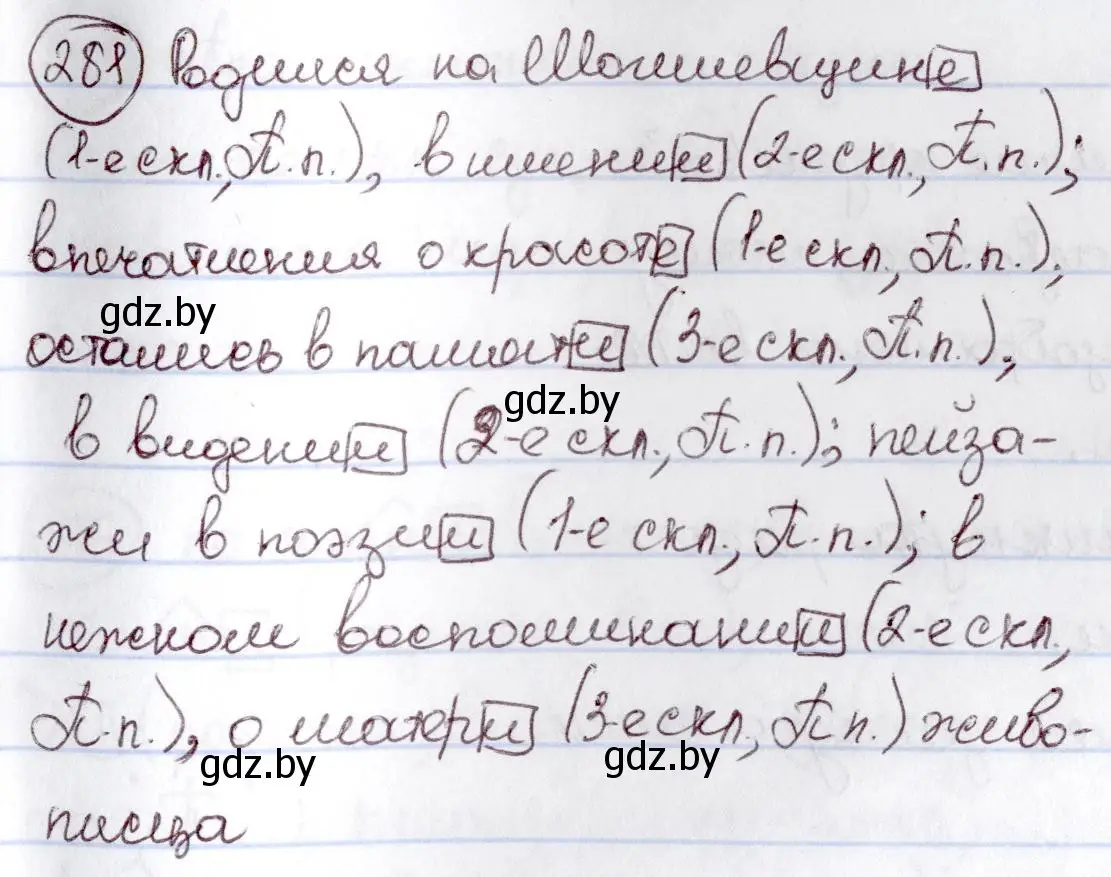 281 Родился на Могилевщине
(1-е скл., П.п.), в имении (2-е скл., П.п.);
впечатления о красоте (1-е скл., П.п.),
gdz.by
остались в памяти (3-е скл., П.п.),
gdz.by
в видении (2-е скл., П.п.); пейза-
жи в поэзии (1-е скл., П.п.); в
нежном воспоминании (2-е скл.,
П.п.), о матери (3-е скл., П.п.) живо-
gdz.by gdz.by
писца